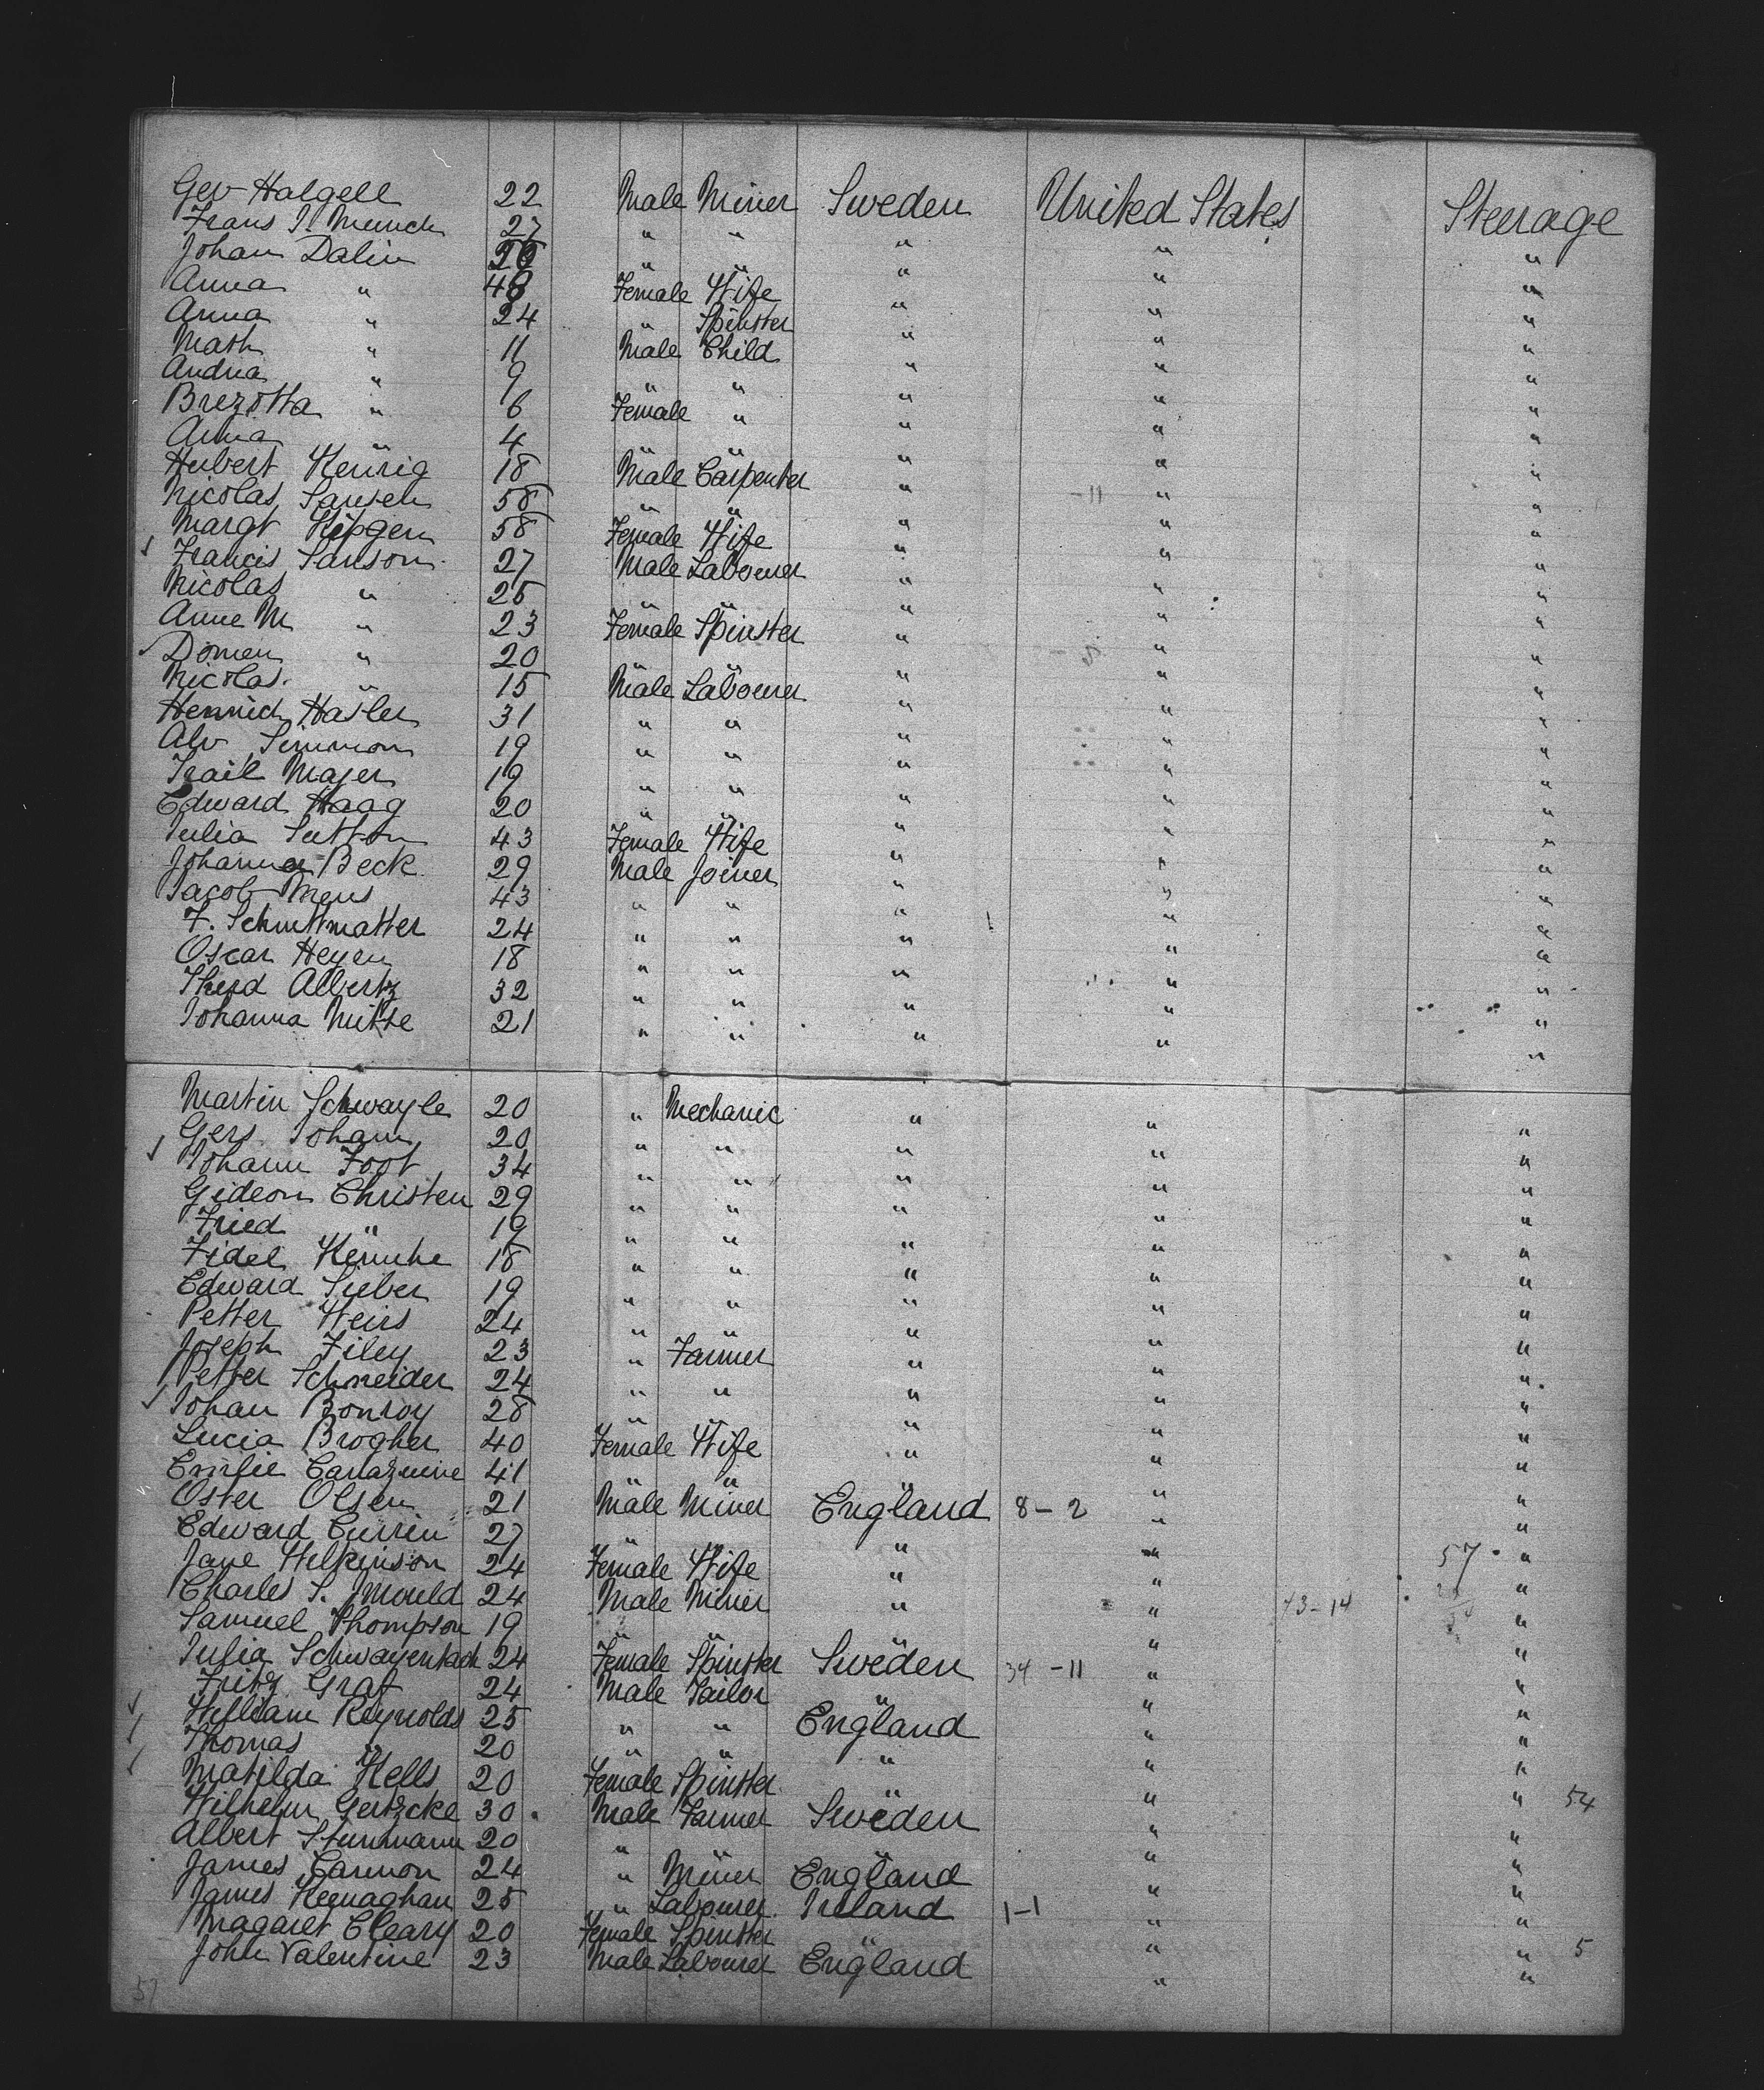 Geo Halgell 22 Male Miner Sweden United States Steerage
Frans I. Munch 27 " " " " "
Johan Dalin 26 " " " " "
Anna " 48 Female Wife " " "
Anna " 24 " Spinster " " "
Math " 11 Male Child " " "
Andria " 9 " " " " "
Brezotta " 6 Female " " " "
Anna " 4 " " " " "
Hubert Kenrig 18 Male Carpenter " " "
Nicolas 58 " " " -11 " "
Margt Kipgen 58 Female Wife " " "
Francis Sanson 27 Male Labourer " " "
Nicolas " 25 " " " " "
Anne M " 23 Female Spinster " " "
Domen " 20 " " " " "
Nicolas " 15 Male Labourer " " "
Henrich Hasler 31 " " " " "
Alv Simmon 19 " " " " "
Trail Majer 19 " " " " "
Edward Haag 20 " " " " "
Julia Sutton 43 Female Wife " " "
Johanna Beck 29 Male Joiner " " "
Jacob Mens 43 " " " " "
F. Schmittmatter 24 " " " " "
Oscar Heyen 18 " " " " "
Albertz 32 " " " " "
Johanna Mitte 21 " " " " "
Martin Schwayle 20 " Mechanic " " "
Gers Johann 20 " " " " "
Johann Foot 34 " " " " "
Gideon Christen 29 " " " " "
Fried " 19 " " " " "
Fidel 18 " " " " "
Edward Sieber 19 " " " " "
Petter Weirs 24 " " " " "
Joseph Filey 23 " Farmer " " "
Petter Schneider 24 " " " " "
Johan Bonroy 28 " " " " "
Lucia Brogher 40 Female Wife " " "
Emilie 41 " " " " "
Oster Olsen 21 Male Miner England 8-2 " "
Edward Currin 27 " " " " "
Jane Wilkinson 24 Female Wife " " 57 "
Charles S. Mould 24 Male Miner " " 13-14 "
Samuel Thompson 19 " " " " "
Julia Schwayenbach 24 Female Spinster Sweden 34-11 " "
Fritz Graf 24 Male Tailor " " "
William Reynolds 25 " " England " "
Thomas " 20 " " " " "
Matilda Wells 20 Female Spinster " " "
Wilhelm Gertzcke 30 Male Farmer Sweden " " 54
Albert Stunmann 20 " " " " "
James Cannon 24 " Miner England " "
James Keenaghan 25 " Labourer Ireland 1-1 " "
Magaret Cleary 20 Female Spinster " " " 5
John Valentine 23 Male Labourer England " "
57